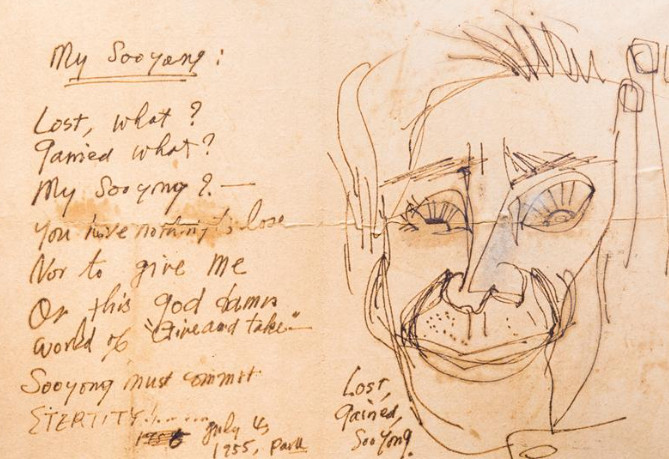 My Sooyang:
Lost, what?
gained what?
My Sooyng?—
you have nothing to lose
Nor to give me
Or this god damn
world of "Give and take"
Sooyong must commit
ETERTITY!
July 4,
1955, Park
Lost,
gained,
Sooyong.